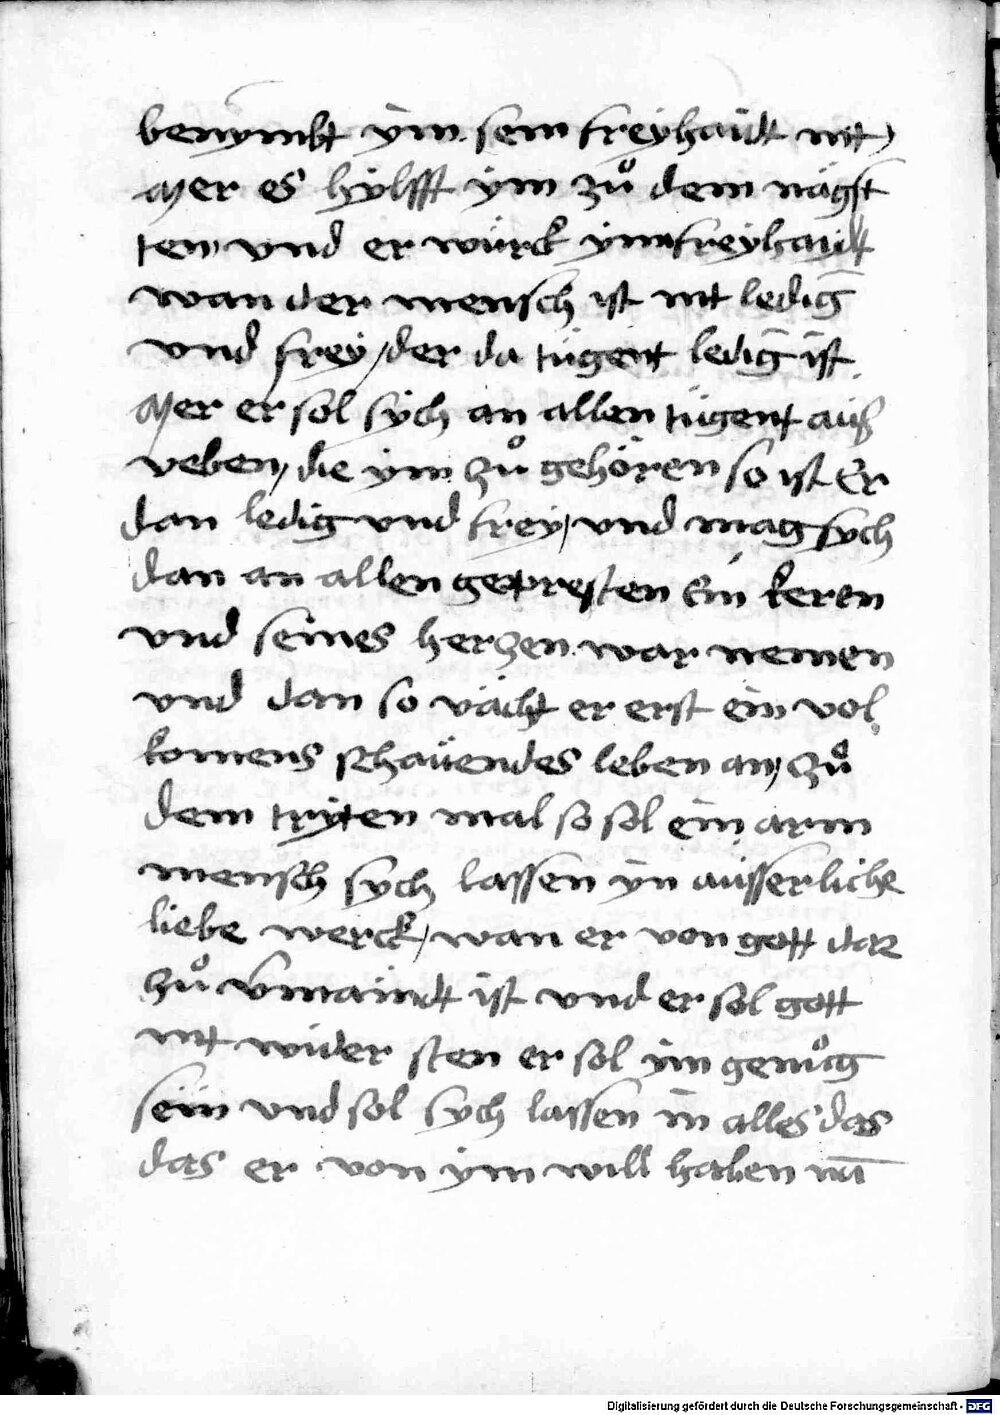 benymbt ym sein freyhaidt nit /
Mer es hylfft ym zů dem nägst
ten / vnd er würck ym freyhaidt
wan der mensch ist nit ledig
vnd frey / der da tügent ledig ist
Mer er sol sych an allen tügent auß
veben / die ym zů gehören so ist Er
dan ledig vnd frey / vnd mag sych
dan an allen gepresten Ein keren
vnd seines herzen war nemen
vnd dan so vächt er erst ein vol
komens schauendes leben an / zů
dem tryten mal so sol ein arm
mensch sych lassen yn ausserliche
liebe werck / wan er von gott dar
zů vmaindt ist vnd er sol gott
nit wider sten er sol ym genůg
sein vnd sol sych lassen in alles das
das er von ym will haben
Digitalisierung gefördert durch die Deutsche Forschungsgemeinschaft - DFG